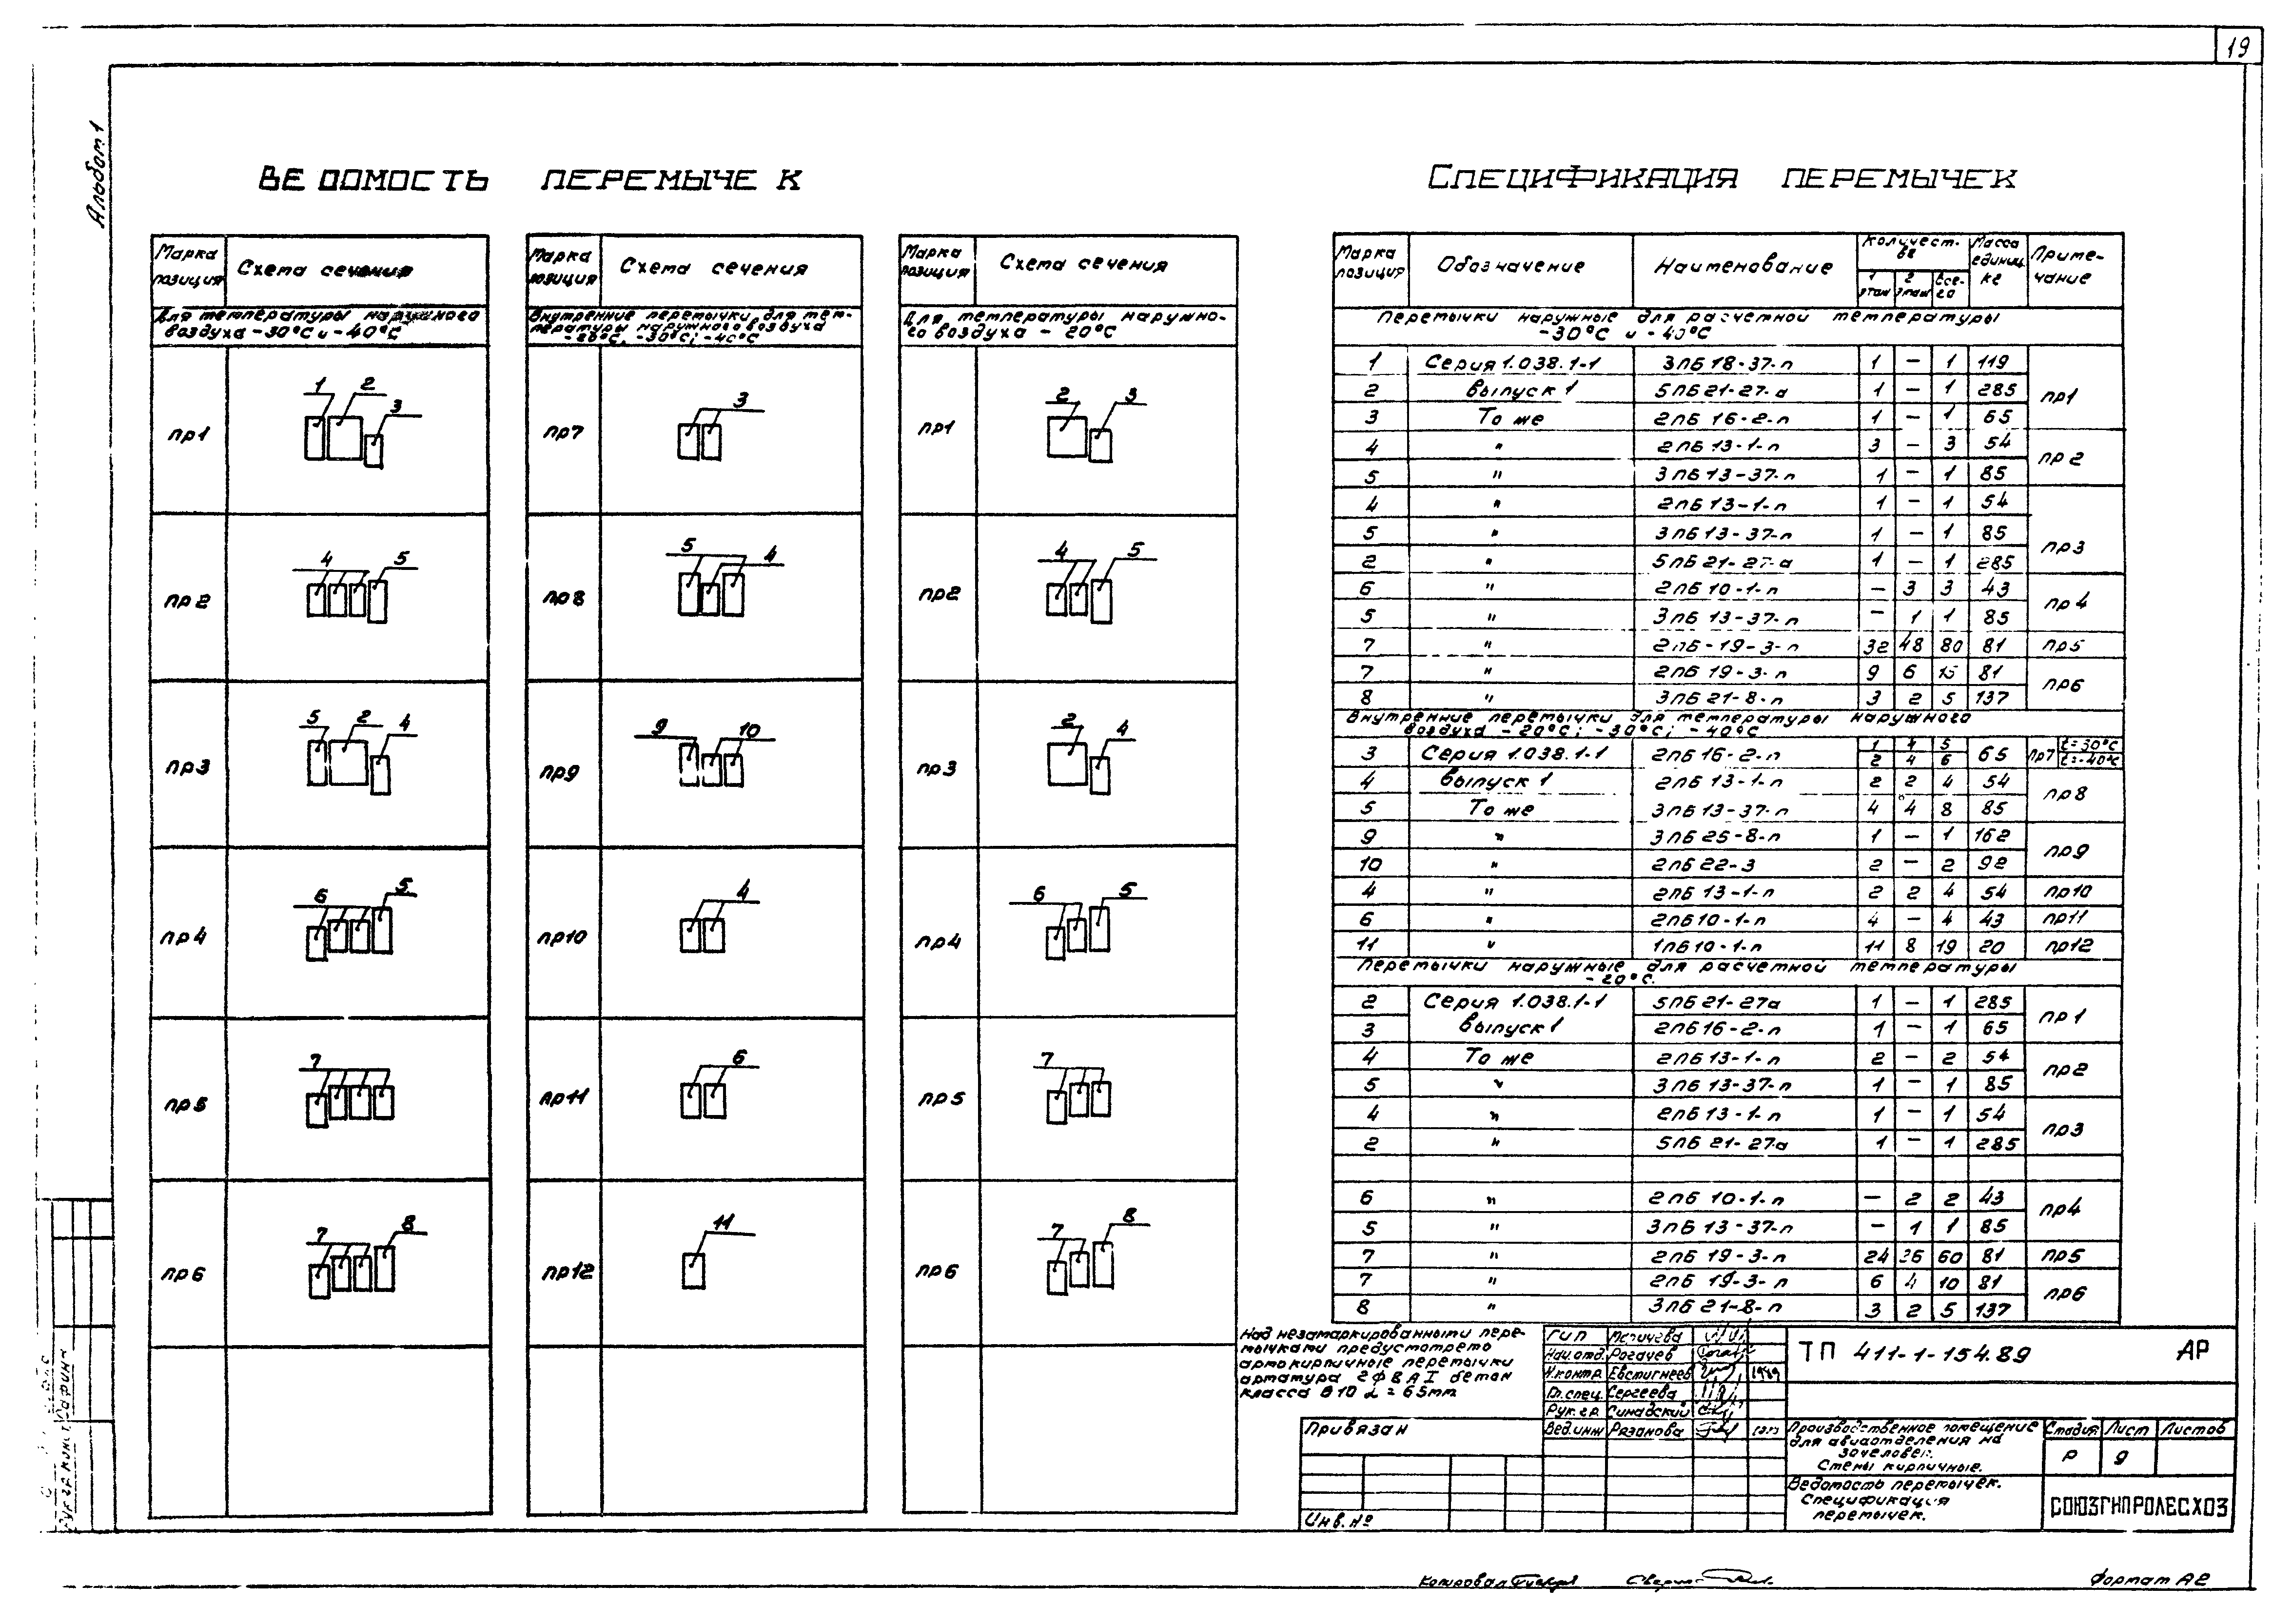 19
Альбом 1
ВЕДОМОСТЬ ПЕРЕМЫЧЕК
Марка позиция
Схема сечения
Для температуры наружного
воздуха -30°С и -40°С
пр1
1 2 3
пр2
4 5
пр3
5 2 4
пр4
6 5
пр5
7
пр6
7 8
Марка позиция
Схема сечения
Внутренние перемычки для тем-
пературы наружного воздуха
-20°С, -30°С; -40°С
пр7
3
пр8
5 4
пр9
9 10
пр10
4
пр11
6
пр12
11
Марка позиция
Схема сечения
Для температуры наружно-
го воздуха - 20°С
пр1
2 3
пр2
4 5
пр3
2 4
пр4
6 5
пр5
7
пр6
7 8
СПЕЦИФИКАЦИЯ ПЕРЕМЫЧЕК
Марка позиция
Обозначение
Наименование
Количест-во
1 этаж
2 этаж
Все-го
Масса единиц. кг
Приме-чание
Перемычки наружные для расчетной температуры
-30°С и -40°С
1 Серия 1.038.1-1 3пБ 18-37-п 1 – 1 119 пр1
2 выпуск 1 5пБ 21-27-а 1 – 1 285
3 То же 2пБ 16-2-п 1 – 1 65
4 " 2пБ 13-1-п 3 – 3 54 пр2
5 " 3пБ 13-37-п 1 – 1 85
4 " 2пБ 13-1-п 1 – 1 54 пр3
5 " 3пБ 13-37-п 1 – 1 85
2 " 5пБ 21-27-а 1 – 1 285
6 " 2пБ 10-1-п – 3 3 43 пр4
5 " 3пБ 13-37-п – 1 1 85
7 " 2пБ-19-3-п 32 48 80 81 пр5
7 " 2пБ 19-3-п 9 6 15 81 пр6
8 " 3пБ 21-8-п 3 2 5 137
Внутренние перемычки для температуры наружного
воздуха -20°С; -30°С; -40°С
3 Серия 1.038.1-1 2пБ 16-2-п 1 4 5 65 пр7 t=-30°С
2 4 6 t=-40°С
4 выпуск 1 2пБ 13-1-п 2 2 4 54 пр8
5 То же 3пБ 13-37-п 4 4 8 85
9 " 3пБ 25-8-п 1 – 1 162 пр9
10 " 2пБ 22-3 2 – 2 92
4 " 2пБ 13-1-п 2 2 4 54 пр10
6 " 2пБ10-1-п 4 – 4 43 пр11
11 " 1пБ10-1-п 11 8 19 20 пр12
Перемычки наружные для расчетной температуры
-20°С.
2 Серия 1.038.1-1 5пБ 21-27а 1 – 1 285 пр1
3 выпуск 1 2пБ16-2-п 1 – 1 65
4 То же 2пБ 13-1-п 2 – 2 54 пр2
5 " 3пБ 13-37-п 1 – 1 85
4 " 2пБ 13-1-п 1 – 1 54 пр3
2 " 5пБ 21-27а 1 – 1 285
6 " 2пБ 10-1-п – 2 2 43 пр4
5 " 3пБ 13-37-п – 1 1 85
7 " 2пБ 19-3-п 24 36 60 81 пр5
7 " 2пБ 19-3-п 6 4 10 81 пр6
8 " 3пБ 21-8-п 3 2 5 137
Над незамаркированными пере-
мычками предусмотрено
армокирпичные перемычки
арматура 2ф8АI бетон
класса В10 δ=65мм
Привязан
Инв.№
ГИП
Нач.отд. Рогачев
Н.контр. Евстигнеев 1989
Гл.спец. Сергеева
Рук.гр. Синадский
Вед.инж Рязанова
ТП 411-1-154.89 АР
Производственное помещение
для авиаотделения на
30человек.
Стены кирпичные.
Стадия Лист Листов
Р 9
Ведомость перемычек.
Спецификация
перемычек.
СОЮЗГИПРОЛЕСХОЗ
Рук.гр.конст. Сафина
Копировал
Сверил
Формат А2